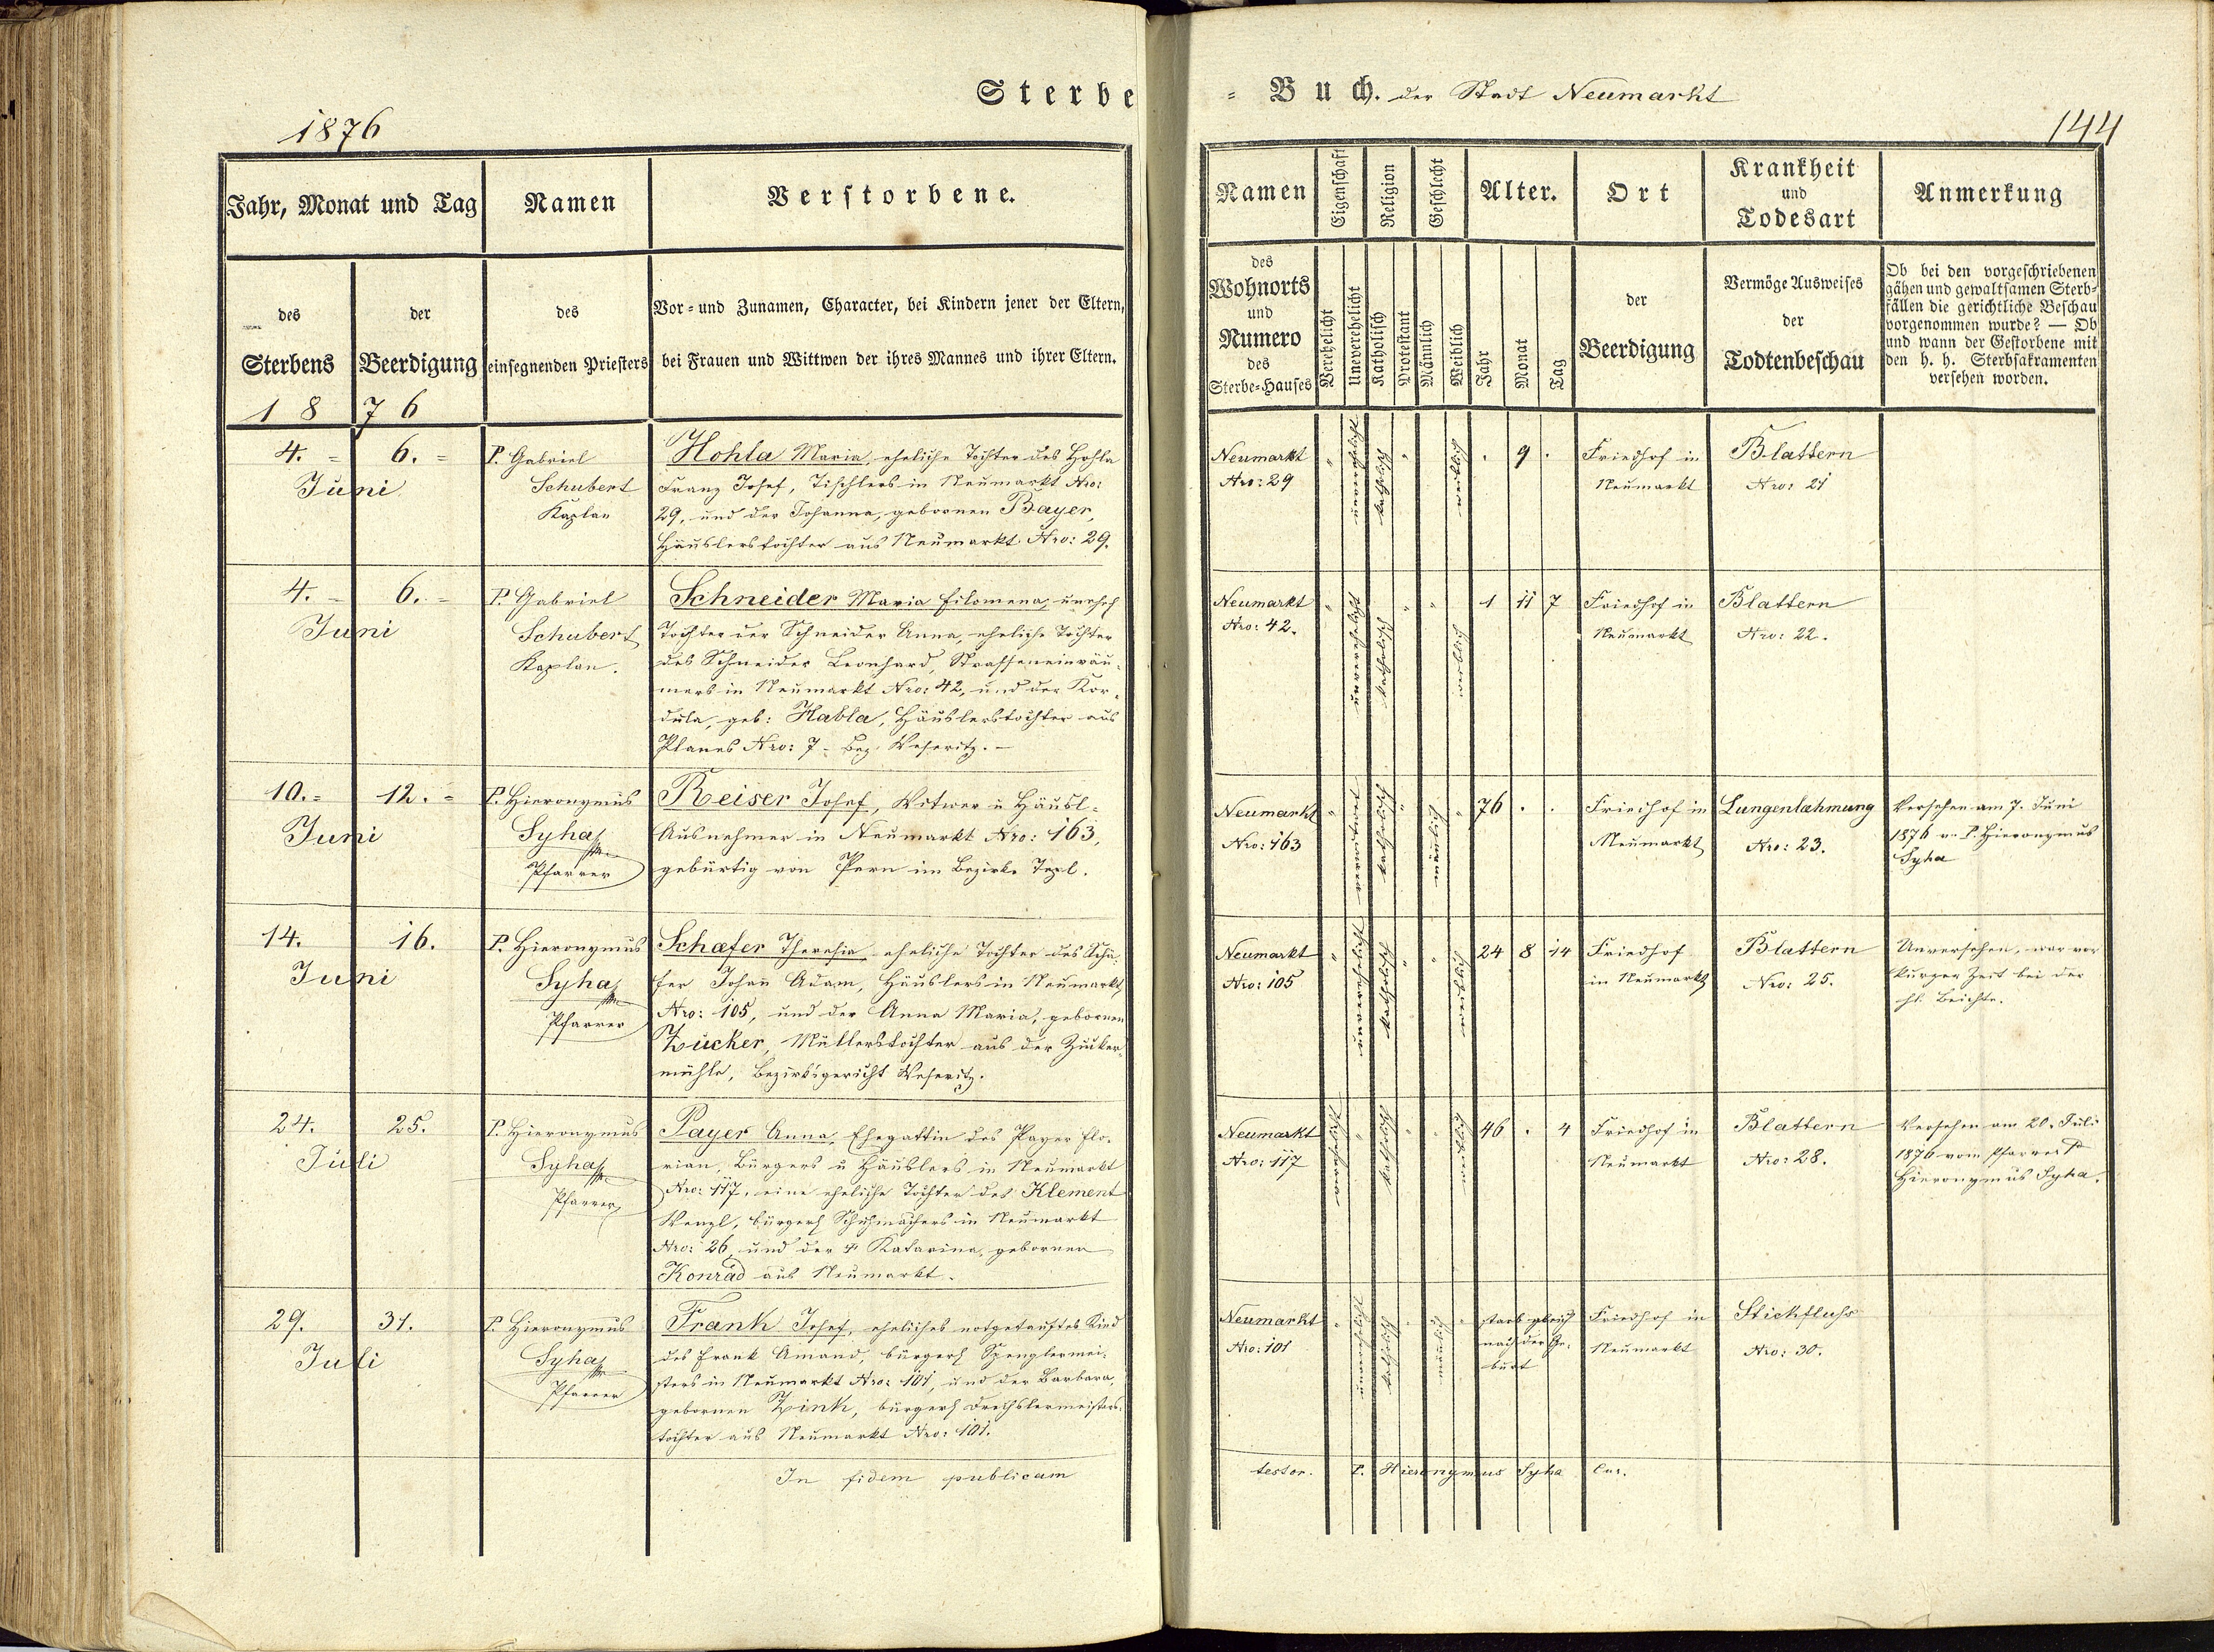 Sterbe
= Buch. der Stadt Neumarkt
1876
144
Jahr, Monat und Tag
Namen
Verstorbene.
des
Sterbens
der
Beerdigung
des
einsegnenden Priesters
Vor- und Zunamen, Character, bei Kindern jener der Eltern,
bei Frauen und Wittwen der ihres Mannes und ihrer Eltern.
18 76
Namen
Eigenschaft
Religion
Geschlecht
Alter.
Ort
Krankheit
und
Todesart
Anmerkung
des
Wohnorts
und
Numero
des
Sterbe=Hauses
Verehelicht
Unverehelicht
Katholisch
Protestant
Männlich
Weiblich
Jahr
Monat
Tag
der
Beerdigung
Vermöge Ausweises
der
Todtenbeschau
Ob bei den vorgeschriebenen
gähen und gewaltsamen Sterb=
fällen die gerichtliche Beschau
vorgenommen wurde? — Ob
und wann der Gestorbene mit
den h. h. Sterbsakramenten
versehen worden.
4. = 6. =
Juni
P. Gabriel
Schubert
Kaplan
Hohla Maria, eheliche Tochter des Hohla
Franz Josef, Tischlers in Neumarkt Nro:
29, und der Johanna, gebornen Bayer,
Häuslerstochter aus Neumarkt Nro: 29.
Neumarkt
Nro: 29
unverehelicht
katholisch
weiblich
9
Friedhof in
Neumarkt
Blattern
Nro: 21
4. = 6. =
Juni
P. Gabriel
Schubert
Kaplan.
Schneider Maria Filomena, unehel
Tochter der Schneider Anna, eheliche Tochter
des Schneider Leonhard, Strasseneinräu-
mers in Neumarkt Nro: 42, und der Kor-
dula, geb: Habla, Häuslerstochter aus
Planes Nro: 7 - Bez. Weseritz. -
Neumarkt
Nro: 42.
unverehelicht
katholisch
weiblich
1 11 7
Friedhof in
Neumarkt
Blattern
Nro: 22.
10. = 12. =
Juni
P. Hieronymus
Syha
Pfarrer
Reiser Josef, Witwer u Häusl-
Ausnehmer in Neumarkt Nro: 163,
gebürtig von Pern im Bezirke Tepl.
Neumarkt
Nro: 163
verwitwet
katholisch
mänlich
76
Friedhof in
Neumarkt
Lungenlæhmung
Nro: 23.
Versehen am 7. Juni
1876 v. P. Hieronymus
Syha
14. 16.
Juni
P. Hieronymus
Syha
Pfarrer
Schæfer Theresia eheliche Tochter des Schä-
fer Johan̄ Adam, Häuslers in Neumarkt
Nro: 105, und der Anna Maria, gebornen
Zucker, Müllerstochter aus der Zucker-
mühle, Bezirksgericht Weseritz.
Neumarkt
Nro: 105
unverehelicht
katholisch
weiblich
24 8 14
Friedhof
in Neumarkt
Blattern
Nro: 25.
Unversehen, war vor
kurzer Zeit bei der
hl. Beichte.
24. 25.
Juli
P. Hieronymus
Syha
Pfarrer
Payer Anna, Ehegattin des Payer Flo-
rian, Bürgers u Häuslers in Neumarkt
Nro: 117, eine eheliche Tochter des Klement
Wenzl, bürgerl Schuhmachers in Neumarkt
Nro: 26, und der Katarina, gebornen
Konrad aus Neumarkt.
Neumarkt
Nro: 117
verehelicht
katholisch
weiblich
46 4
Friedhof in
Neumarkt
Blattern
Nro: 28.
Versehen am 20. Juli
1876 vom Pfarrer P
Hieronymus Syha.
29. 31.
Juli
P. Hieronymus
Syha
Pfarrer
Frank Josef, eheliches notgetauftes Kind
des Frank Amand, bürgerl Spenglermei-
sters in Neumarkt Nro: 101, und der Barbara,
gebornen Zink, bürgerl Drechslermeisters-
tochter aus Neumarkt Nro: 101.
Neumarkt
Nro: 101
unverehelicht
katholisch
mänlich
starb gleich
nach der Ge-
burt
Friedhof in
Neumarkt
Stickfluss
Nro: 30.
In fidem publicam
testor. P. Hieronymus Syha Cur.